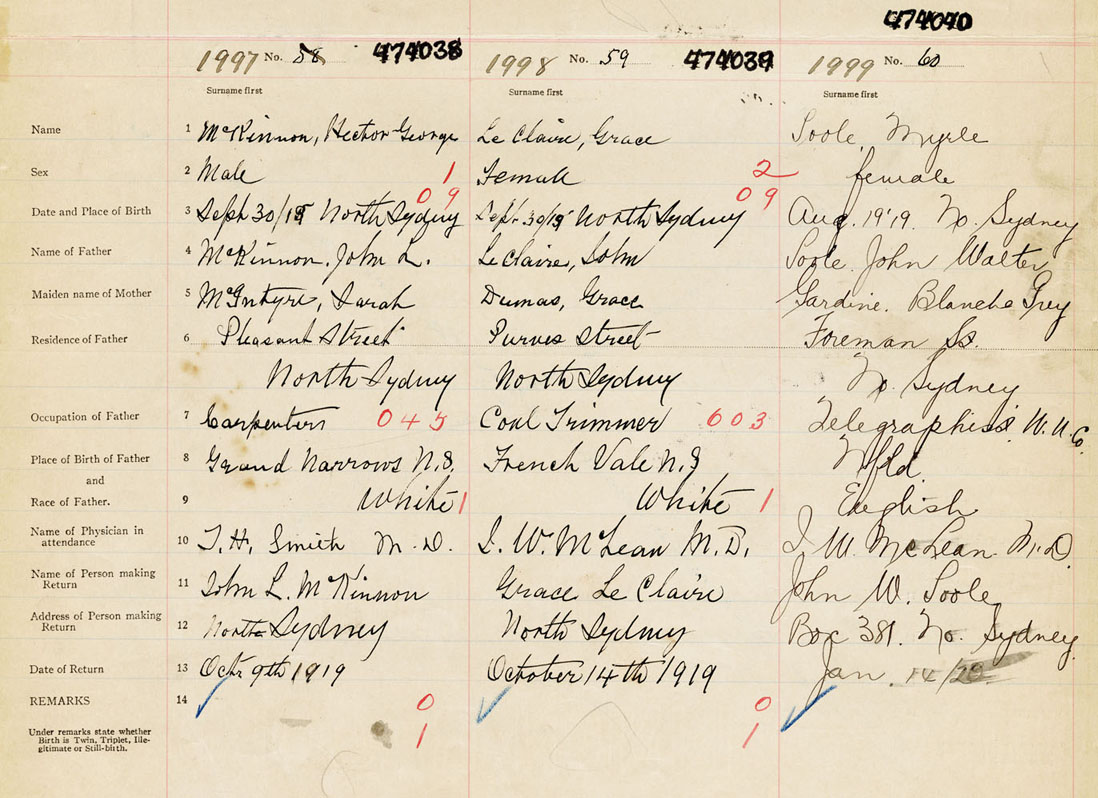 474040
1997 No. 58 474038 1998 No. 59 474039 1999 No. 60
Surname first Surname first Surname first
Name 1 McKinnon, Hector George Le Claire, Grace Soole, Myrle
Sex 2 Male 1 Female 2 female
09 09
Date and Place of Birth 3 Sept 30/19 North Sydney Sept 30/19 North Sydney Aug. 19'19. No. Sydney
Name of Father 4 McKinnon, John L. Le Claire, John Soole, John Walter
Maiden name of Mother 5 McIntyre, Sarah Dumas, Grace Jardine, Blanche Grey
Residence of Father 6 Pleasant Street Purves Street Foreman St.
North Sydney North Sydney No. Sydney
Occupation of Father 7 Carpenter 045 Coal Trimmer 603 Telegraphist W. U. Co.
Place of Birth of Father 8 Grand Narrows N.S. French Vale N.S Nfld.
and
Race of Father. 9 White 1 White 1 English
Name of Physician in
attendance 10 T. H. Smith M.D. J. W. McLean M.D. J. W. McLean M.D.
Name of Person making
Return 11 John L. McKinnon Grace Le Claire John W. Soole
Address of Person making
Return 12 North Sydney North Sydney Box 381. No. Sydney.
Date of Return 13 Oct. 9th 1919 October 14th 1919 Jan. 14/20
REMARKS 14 0 0
Under remarks state whether
Birth is Twin, Triplet, Ille- 1 1
gitimate or Still-birth.